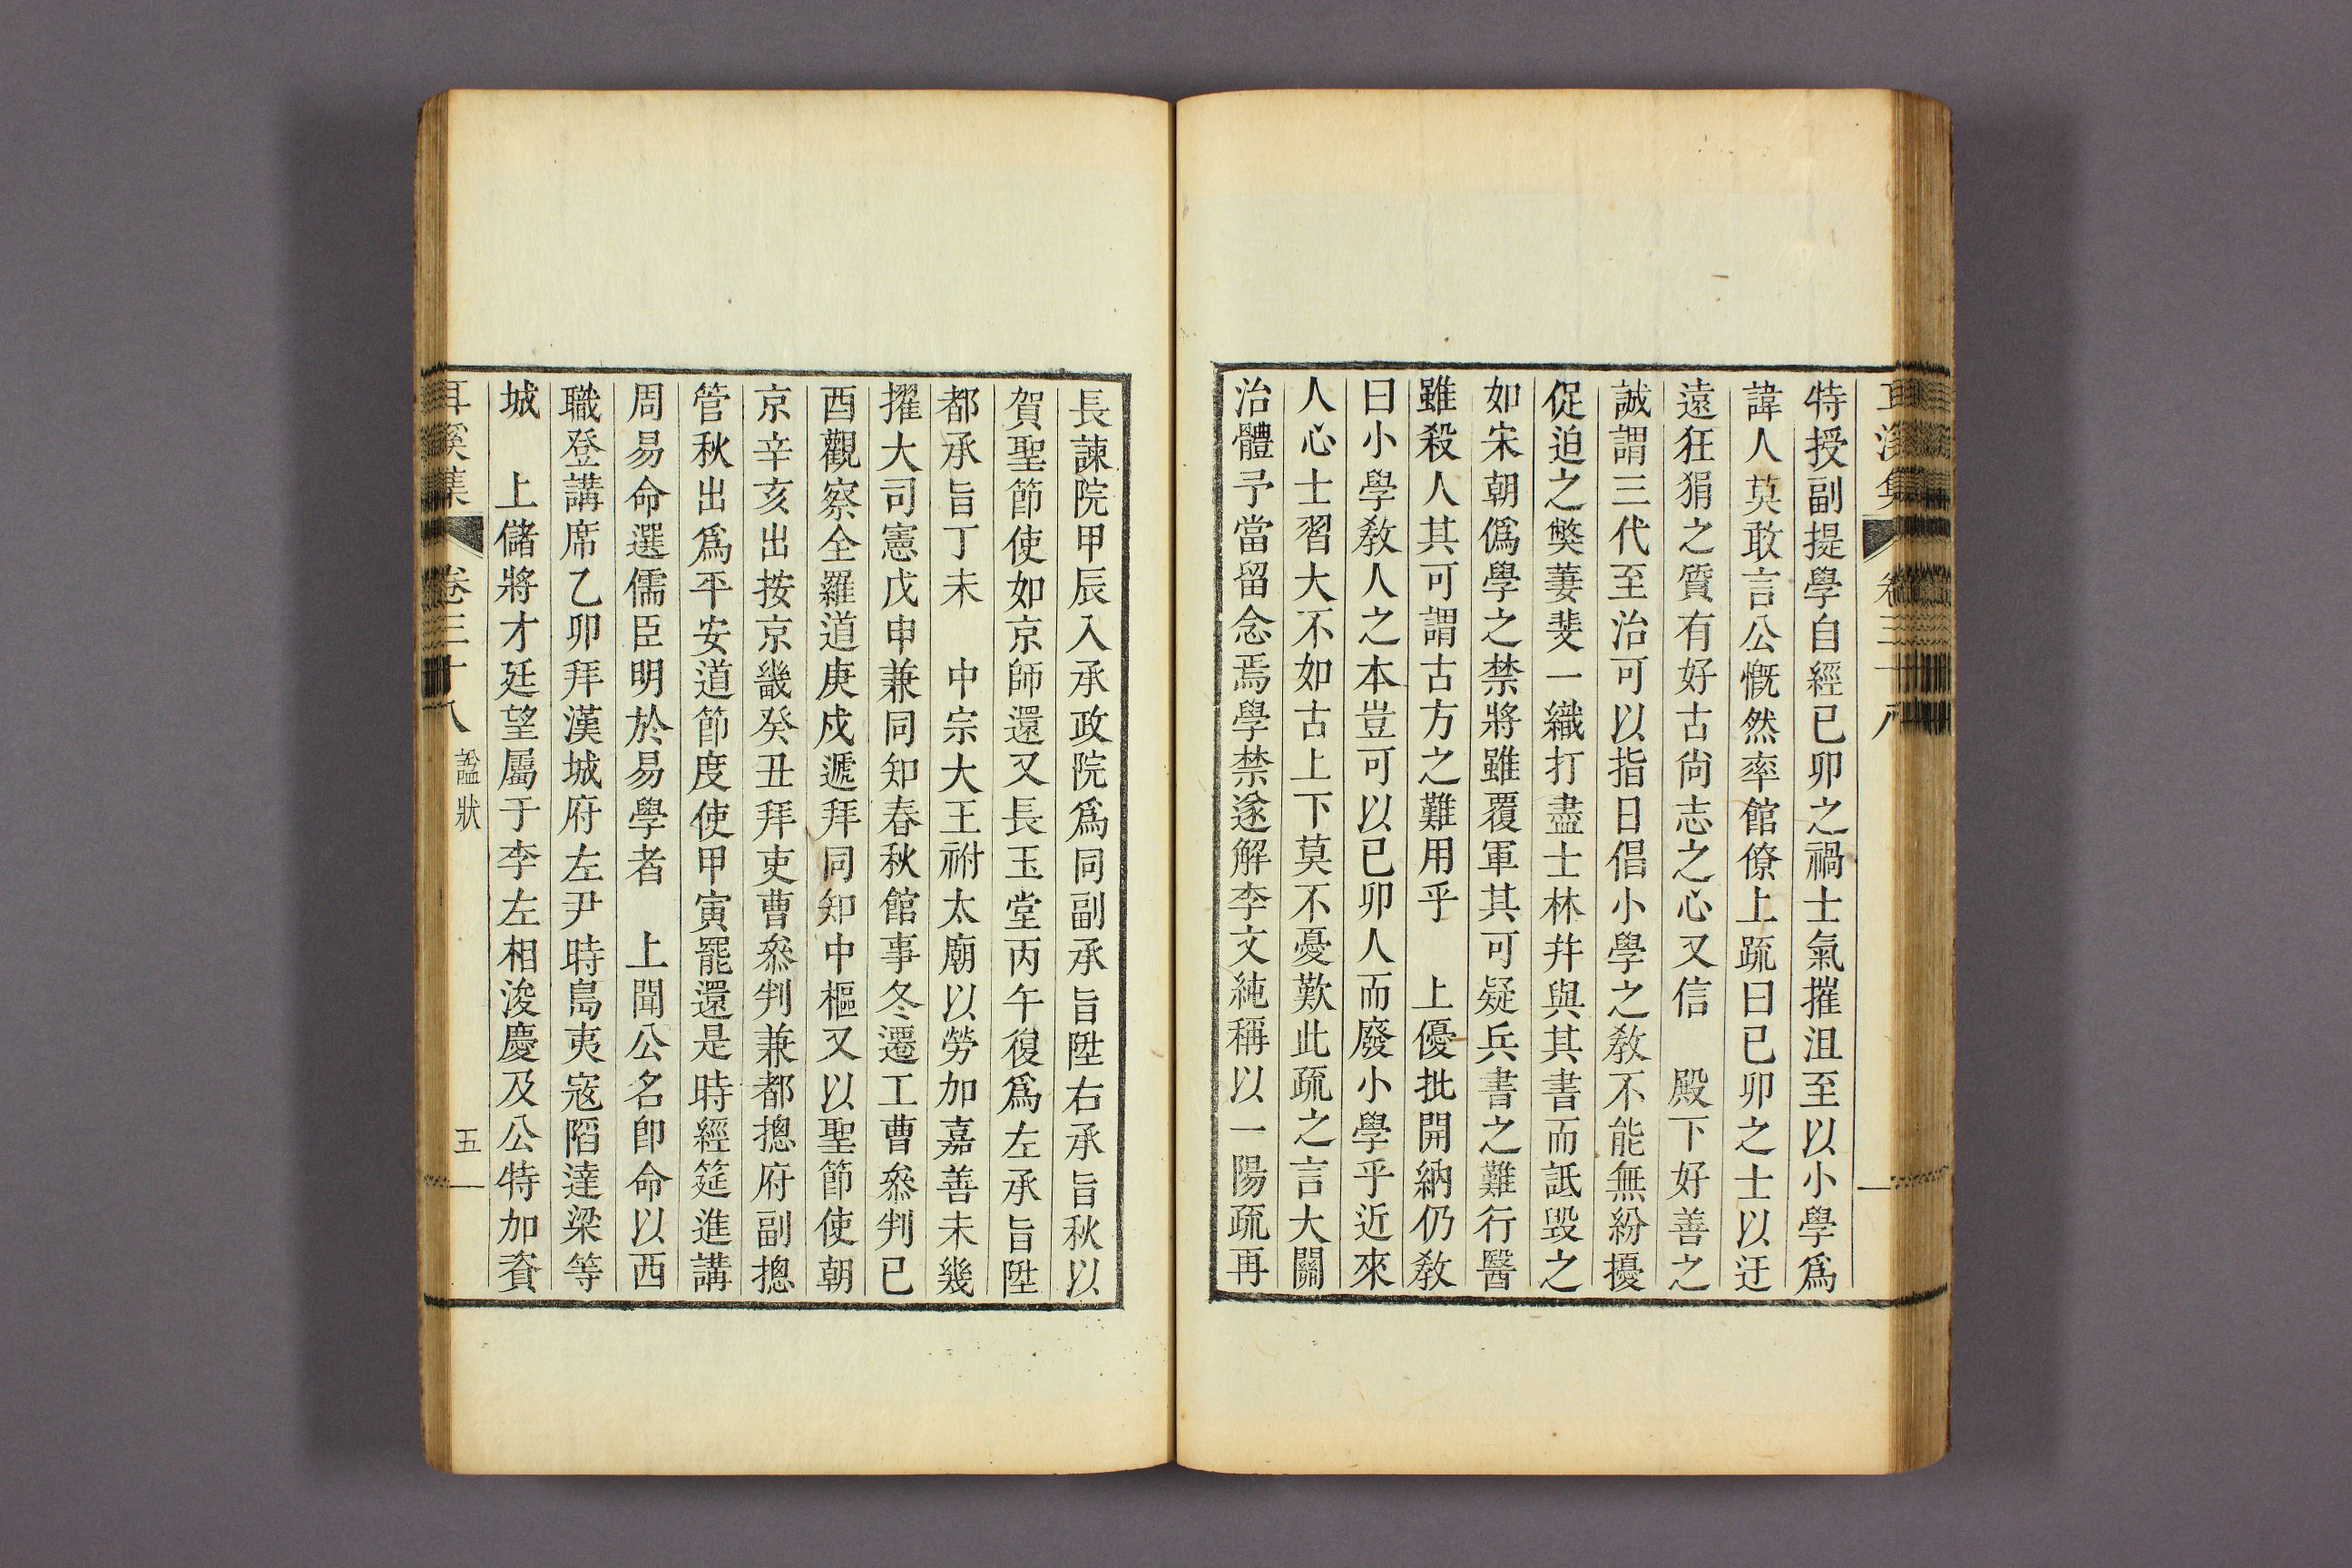 耳溪集 卷三十八
特授副提學自經已卯之禍士氣摧沮至以小學爲
諱人莫敢言公慨然率館僚上疏曰已卯之士以迂
遠狂狷之質有好古尙志之心又信 殿下好善之
誠謂三代至治可以指日倡小學之敎不能無紛擾
促迫之獘萋斐一織打盡士林幷與其書而詆毁之
如宋朝僞學之禁將雖覆軍其可疑兵書之難行醫
雖殺人其可謂古方之難用乎 上優批開納仍敎
曰小學敎人之本豈可以已卯人而廢小學乎近來
人心士習大不如古上下莫不憂歎此疏之言大關
治體予當留念焉學禁遂解李文純稱以一陽疏再
長諫院甲辰入承政院爲同副承旨陞右承旨秋以
賀聖節使如京師還又長玉堂丙午復爲左承旨陞
都承旨丁未 中宗大王祔太廟以勞加嘉善未幾
擢大司憲戊申兼同知春秋館事冬遷工曹叅判已
酉觀察全羅道庚戍遞拜同知中樞又以聖節使朝
京辛亥出按京畿癸丑拜吏曹叅判兼都摠府副摠
管秋出爲平安道節度使甲寅罷還是時經筵進講
周易命選儒臣明於易學者 上聞公名卽命以西
職登講席乙卯拜漢城府左尹時島夷寇陷達梁等
城 上儲將才廷望屬于李左相浚慶及公特加資
耳溪集 卷三十八 諡狀 五